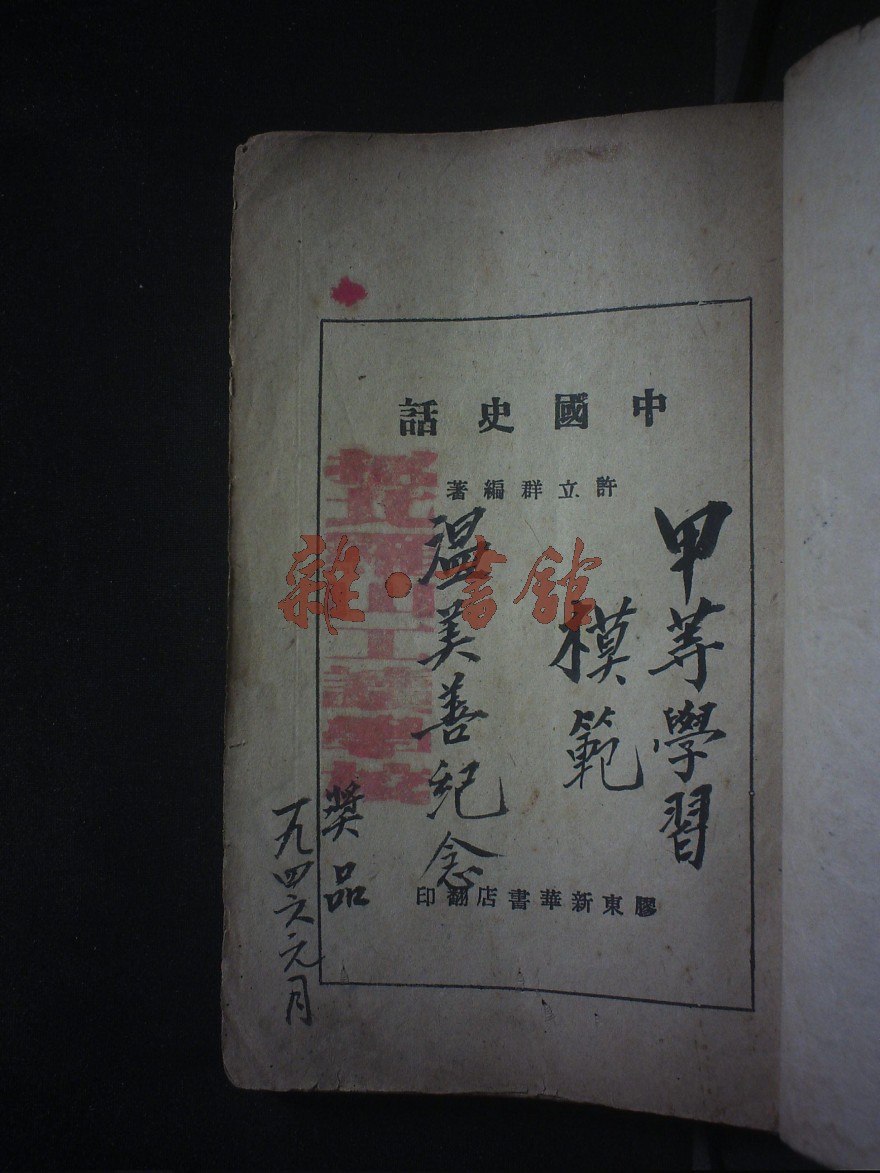 中國史話
許立群編著
甲等學習
模範
温美善紀念
學校
獎品
一九四六元月
膠東新華書店翻印
雜·書館